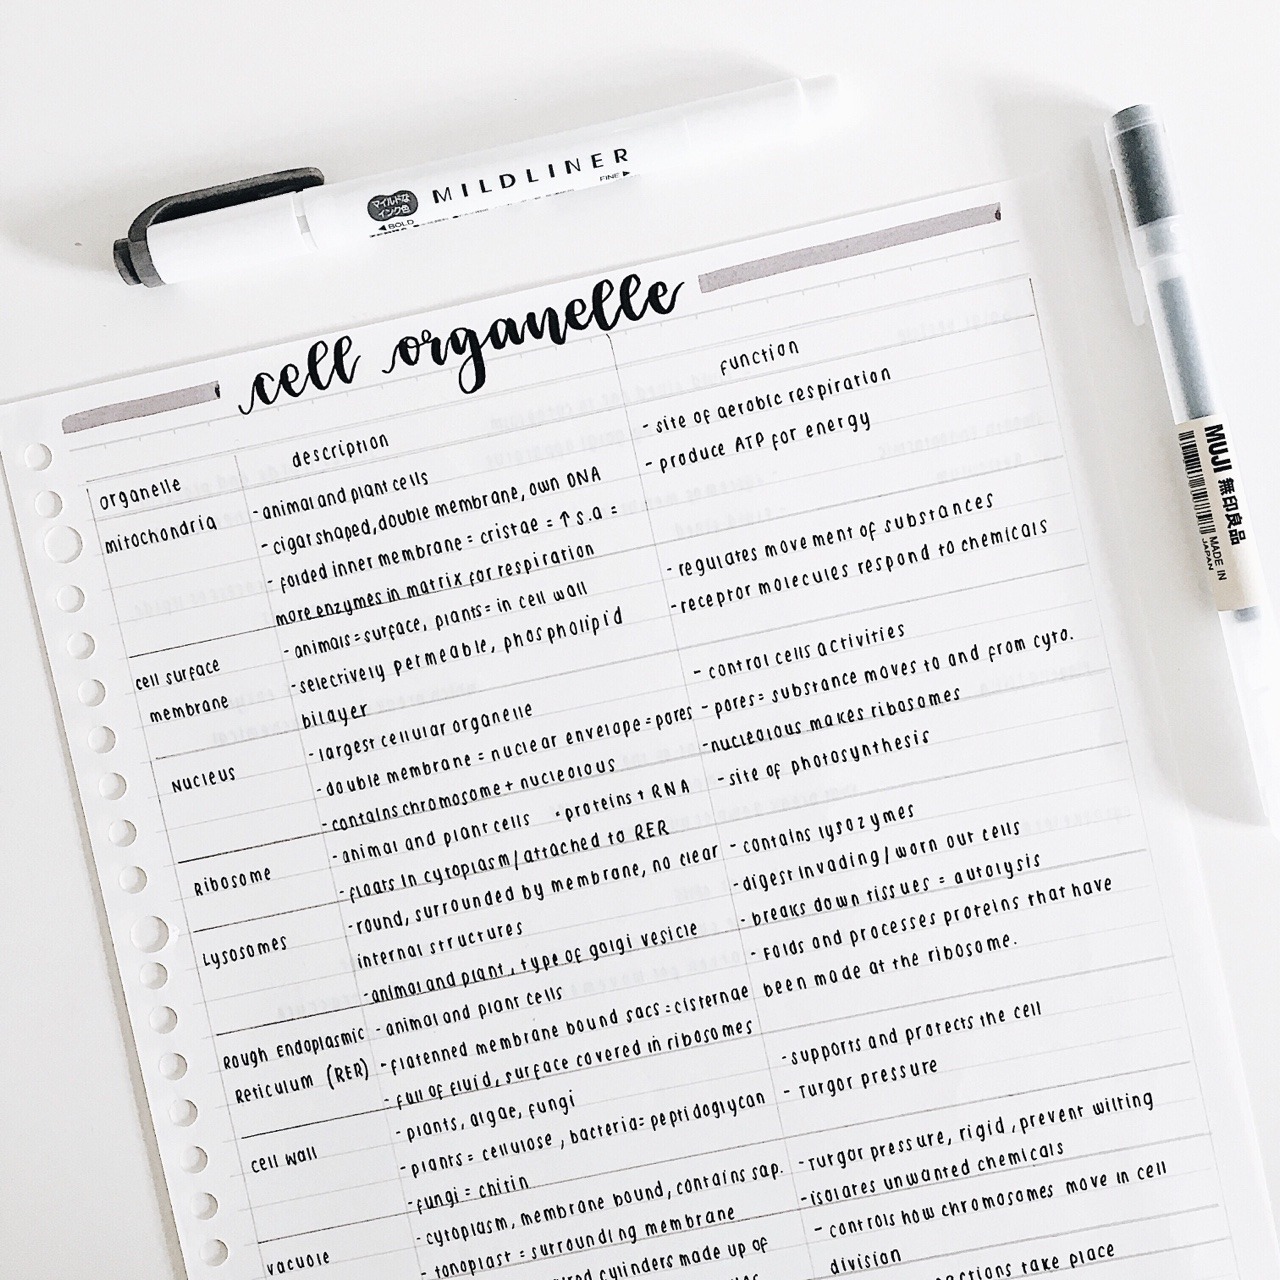 マイルドな
インク色
MILDLINER
◀BOLD
FINE▶
MUJI 無印良品
MADE IN
JAPAN
cell organelle
organelle
description
function
mitochondria
- animal and plant cells
- cigar shaped, double membrane, own DNA
- folded inner membrane = cristae = ↑ s.a =
more enzymes in matrix for respiration
- site of aerobic respiration
- produce ATP for energy
cell surface
membrane
- animals = surface, plants = in cell wall
- selectively permeable, phospholipid
bilayer
- regulates movement of substances
- receptor molecules respond to chemicals
Nucleus
- largest cellular organelle
- double membrane = nuclear envelope = pores
- contains chromosome + nucleolous
- control cells activities
- pores = substance moves to and from cyto.
- nucleolous makes ribosomes
- site of photosynthesis
Ribosome
- animal and plant cells • proteins + RNA
- floats in cytoplasm / attached to RER
Lysosomes
- round, surrounded by membrane, no clear
internal structures
- animal and plant, type of golgi vesicle
- contains lysozymes
- digest invading / worn out cells
- breaks down tissues = autolysis
Rough Endoplasmic
Reticulum (RER)
- animal and plant cells
- flatenned membrane bound sacs = cisternae
- full of fluid, surface covered in ribosomes
- Folds and processes proteins that have
been made at the ribosome.
cell wall
- plants, algae, fungi
- plants = cellulose, bacteria = peptidoglycan
- fungi = chitin
- supports and protects the cell
- turgor pressure
vacuole
- cytoplasm, membrane bound, contains sap.
- tonoplast = surrounding membrane
- turgor pressure, rigid, prevent wilting
- isolates unwanted chemicals
cylinders made up of
- controls how chromosomes move in cell
division
take place